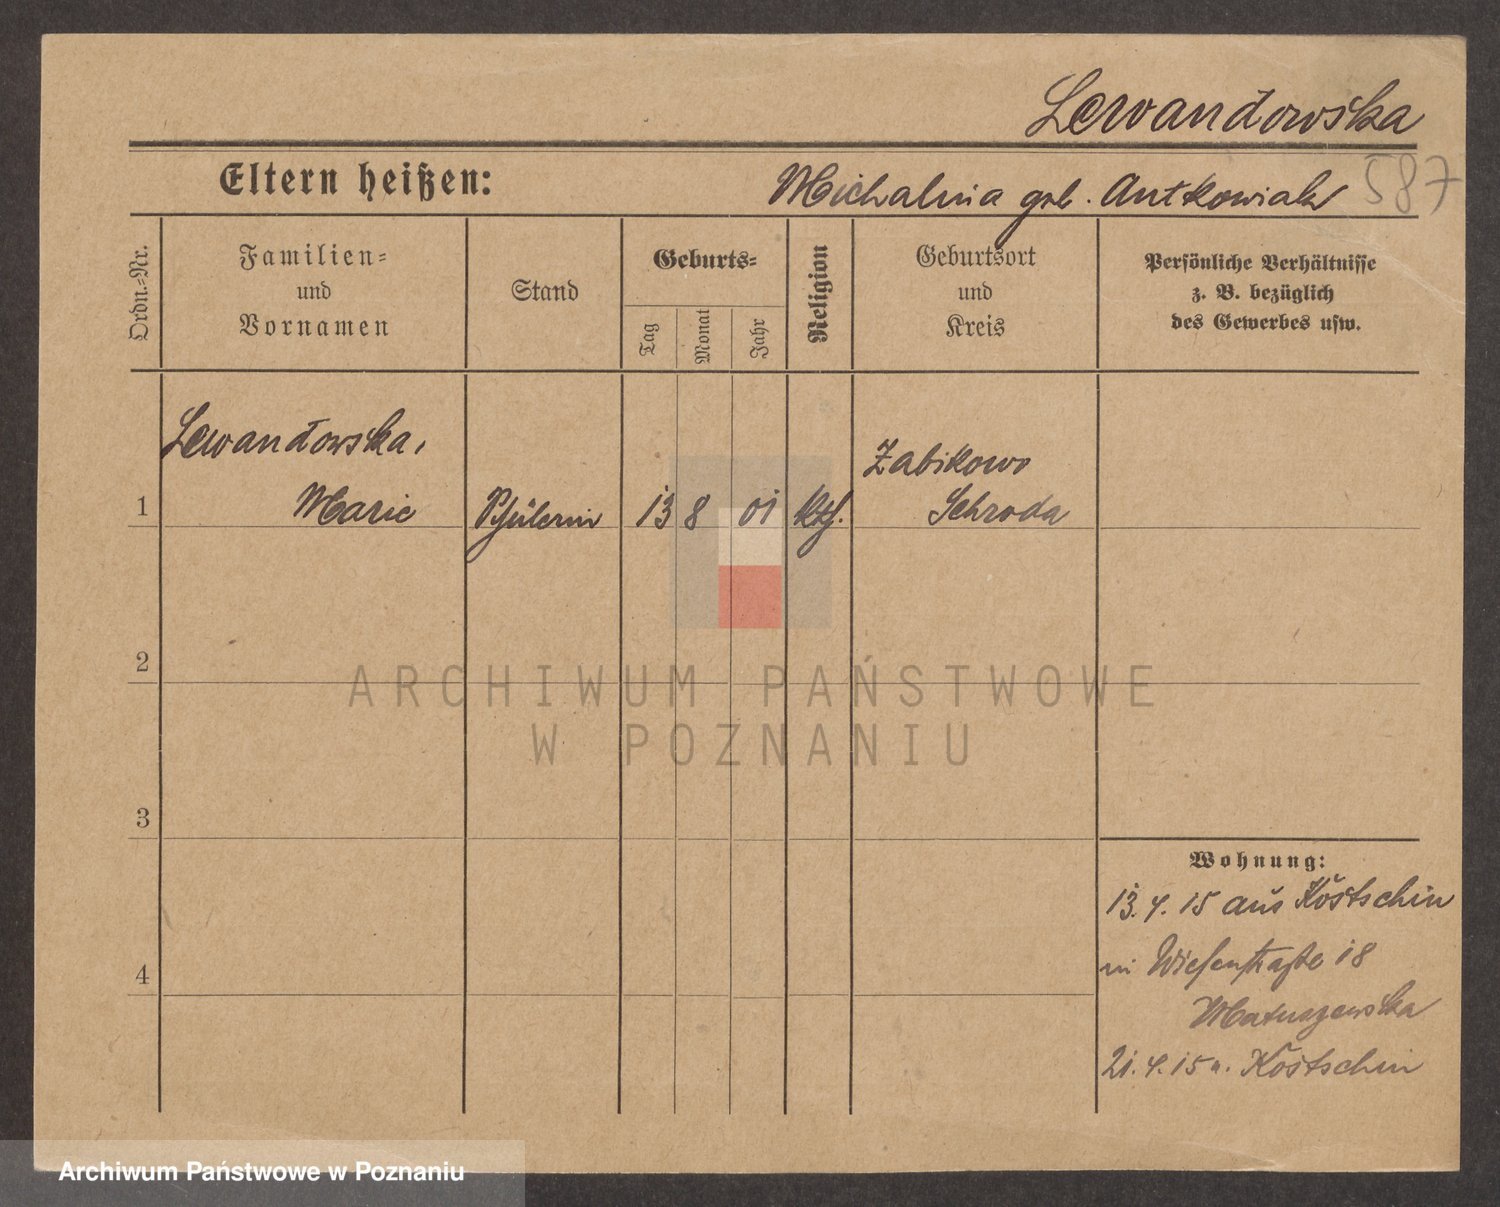 Lewandowska
Eltern heißen:
Michalina geb. Antkowiak
587
Ordn.-Nr.
Familien-
und
Vornamen
Stand
Geburts-
Tag
Monat
Jahr
Religion
Geburtsort
und
Kreis
Persönliche Verhältnisse
z. B. bezüglich
des Gewerbes usw.
Lewandowska,
1 Marie Schülerin 13 8 01 kth.
Zabikowo
Schroda
2
3
4
Wohnung:
13.4.15 aus Kostschin
in Wiesenstraße 18
Matuszewska
21.4.15 n. Kostschin
ARCHIWUM PAŃSTWOWE
W POZNANIU
Archiwum Państwowe w Poznaniu